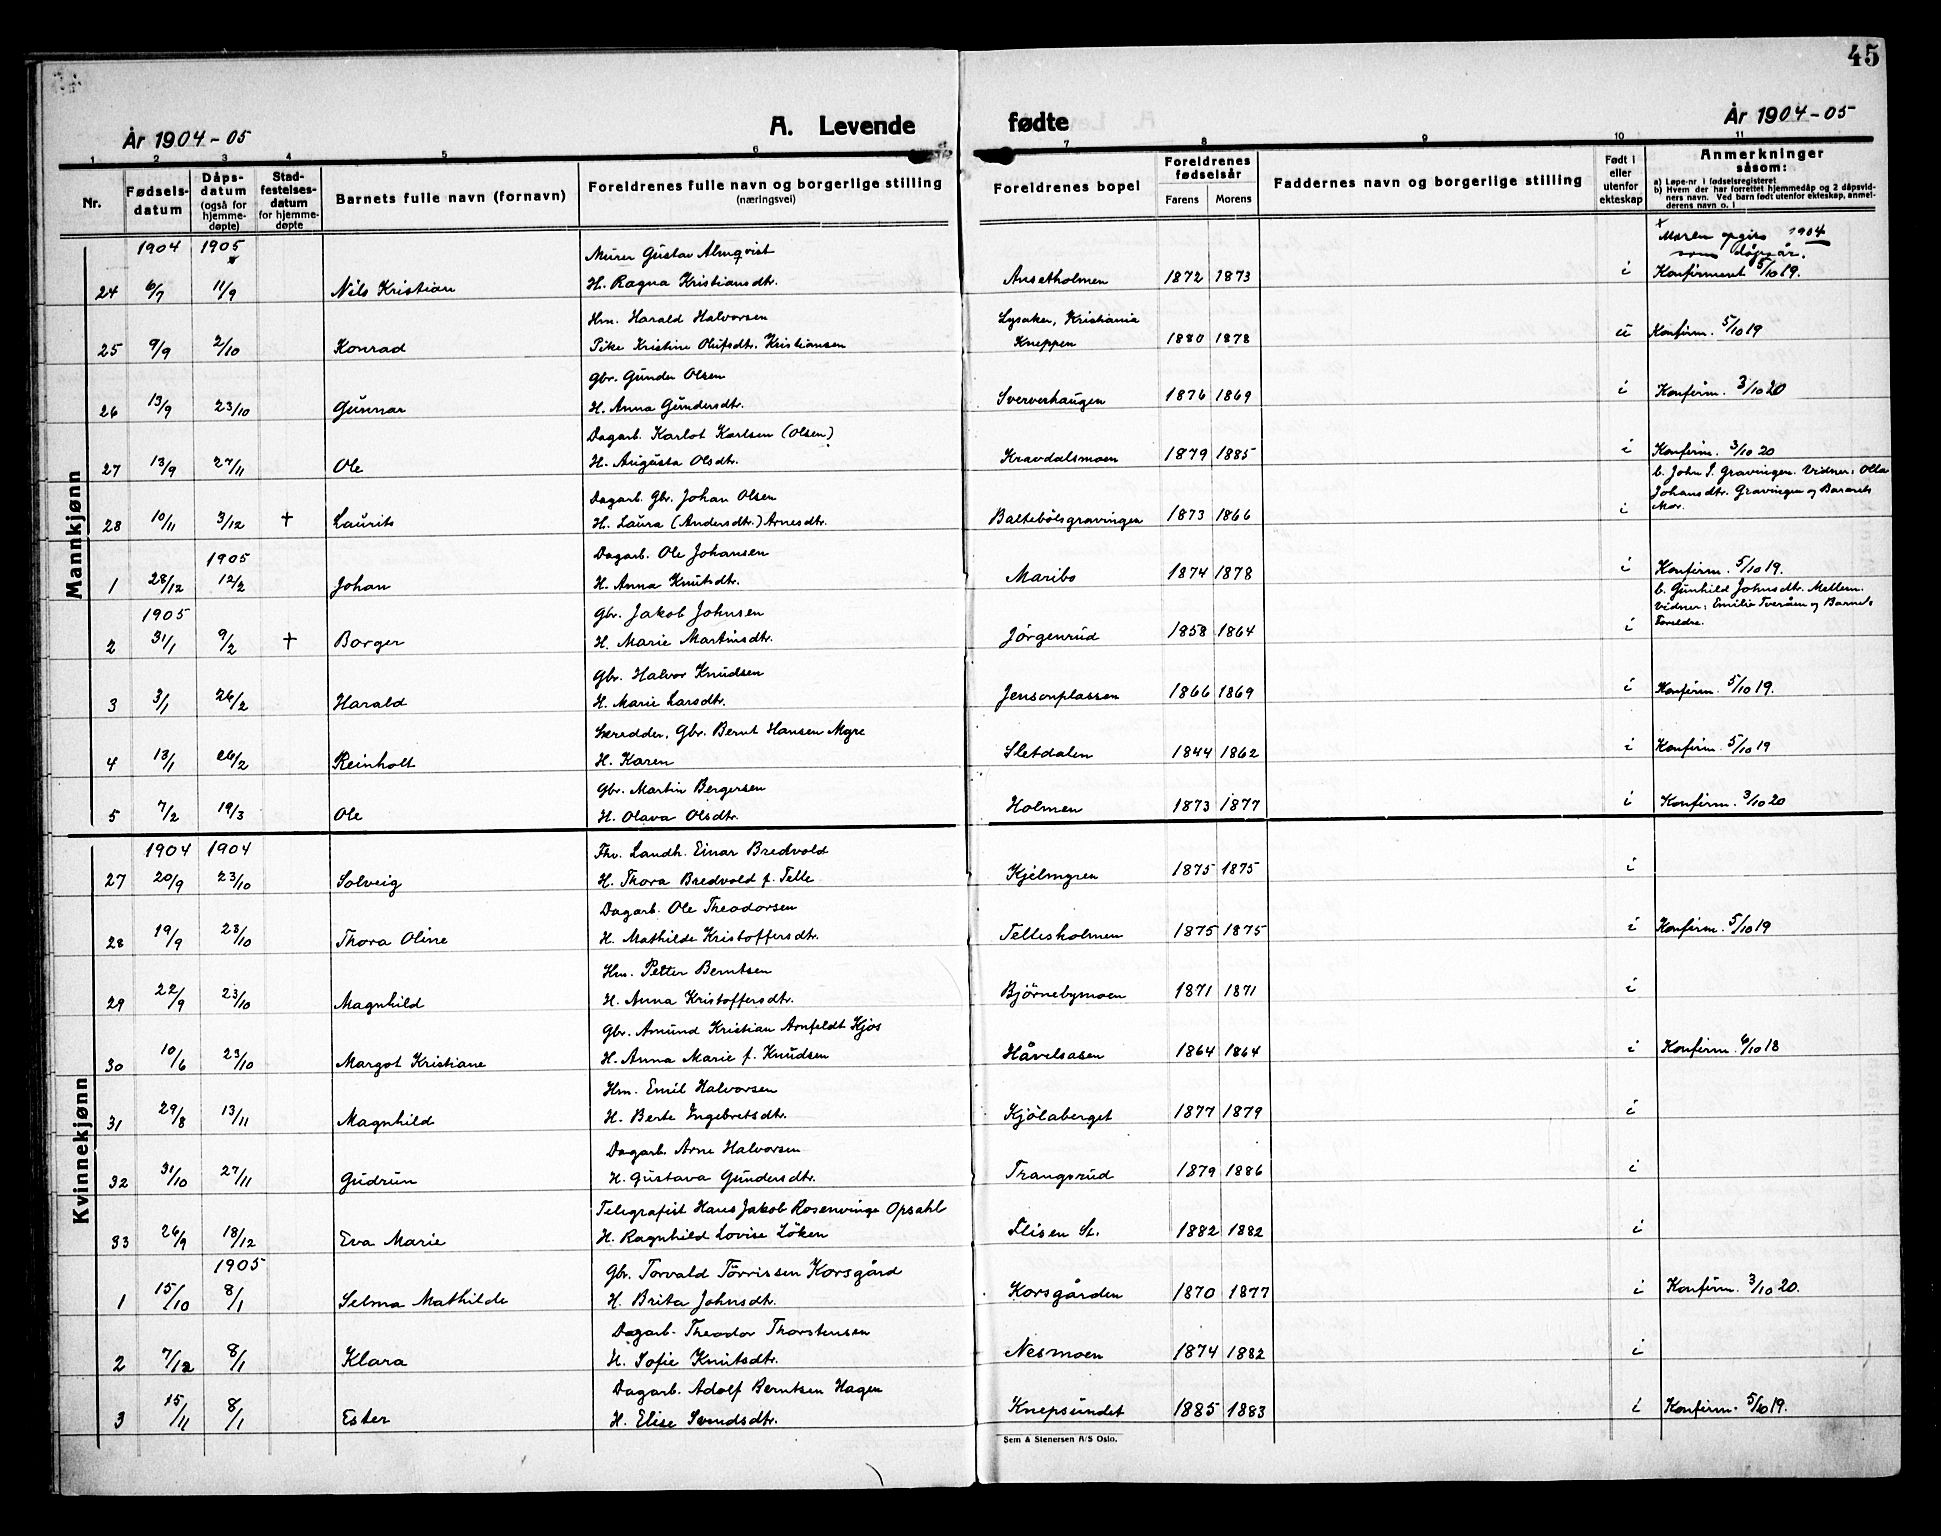 45
År 1904-05 A. Levende fødte År 1904-05
1 2 3 4 5 6 7 8 9 10 11
Nr. Fødsels-datum Dåps-datum (også for hjemme-døpte) Stad-festelses-datum for hjemme-døpte Barnets fulle navn (fornavn) Foreldrenes fulle navn og borgerlige stilling (næringsvei) Foreldrenes bopel Foreldrenes fødselsår Farens Morens Faddernes navn og borgerlige stilling Født i eller utenfor ekteskap Anmerkninger såsom:
a) Løpe-nr i fødselsregisteret
b) Hvem der har forrettet hjemmedåp og 2 dåpsvid-
ners navn. Ved barn født utenfor ekteskap, anmel-
derens navn o. l
Mannkjønn
1904 1905 Murer Gustav Almqvist x Moren opgir 1904 som dåpsår.
24 6/7 11/9 Nils Kristian H. Ragna Kristiansdtr. Ansetholmen 1872 1873 i Konfirmert 5/10 19.
Hm. Harald Halvorsen Lysaker, Kristiania
25 9/9 2/10 Konrad Pike Kristine Olufsdtr. Kristiansen Kneppen 1880 1878 u Konfirm. 5/10 19
Gbr. Gunder Olsen
26 13/9 23/10 Gunnar H. Anna Gundersdtr. Sververhaugen 1876 1869 i Konfirm. 3/10 20
Dagarb. Karlot Karlsen (Olsen)
27 13/9 27/11 Ole H. Augusta Olsdtr. Kravdalsmoen 1879 1885 i Konfirm. 3/10 20
Dagarb. Gbr. Johan Olsen b. John S. Gravingen. Vidner: Olla
Johansdtr. Gravingen og Barnets
28 10/11 3/12 † Laurits H. Laura (Andersdtr.) Arnesdtr. Baltebölsgravingen 1873 1866 i Mor.
1905 Dagarb. Ole Johansen
1 28/12 12/2 Johan H. Anna Knutsdtr. Maribo 1874 1878 i Konfirm. 5/10 19.
1905 Gbr. Jakob Johnsen b. Gunhild Johnsdtr. Mellem.
Vidner: Emilie Tveråen og Barnets
2 31/1 9/2 † Borger H. Marie Martinsdtr. Jörgenrud 1858 1864 i Foreldre.
Gbr. Halvor Knudsen
3 3/1 26/2 Harald H. Marie Larsdtr. Jensonplassen 1866 1869 i Konfirm. 5/10 19.
Gbr. Bernt Hansen Myre
4 13/1 26/2 Reinholt H. Karen Sletdalen 1844 1862 i Konfirm. 5/10 19
Gbr. Martin Bergersen
5 7/2 19/3 Ole H. Olava Olsdtr. Holmen 1873 1877 i Konfirm. 3/10 20
Kvinnekjønn
1904 1904 Fhv. Landh. Einar Bredvold
27 20/9 23/10 Solveig H. Thora Bredvold f. Telle Kjelmyren 1875 1875 i
Dagarb. Ole Theodorsen
28 19/9 23/10 Thora Oline H. Mathilde Kristoffersdtr. Tellesholmen 1875 1875 i Konfirm. 5/10 19
Hm. Petter Berntsen
29 22/9 23/10 Magnhild H. Anna Kristoffersdtr. Björnebymoen 1871 1871 i
Gbr. Amund Kristian Arnfeldt Kjos
30 10/6 23/10 Margot Kristiane H. Anna Marie f. Knudsen Håvelsasen 1864 1864 i Konfirm. 6/10 18
Hm. Emil Halvorsen
31 29/8 13/11 Magnhild H. Berte Ingebretsdtr. Kjölaberget 1877 1879 i
Dagarb. Arne Halvorsen
32 31/10 27/11 Gudrun H. Gustava Gundersdtr. Trangsrud 1879 1886 i
Telegrafist Hans Jakob Rosenvinge Opsahl
33 26/9 18/12 Eva Marie H. Ragnhild Lovise Löken Flisen St. 1882 1882 i
1905 Gbr. Torvald Törrissen Korsgård
1 15/10 8/1 Selma Mathilde H. Brita Johnsdtr. Korsgården 1870 1877 i Konfirm. 3/10 20.
Dagarb. Theodor Thorstensen
2 7/12 8/1 Klara H. Sofie Knutsdtr. Nesmoen 1874 1882 i
Dagarb. Adolf Berntsen Hagen
3 15/11 8/1 Ester H. Elise Svendsdtr. Knepsundet 1885 1883 i Konfirm. 5/10 19.
Sem & Stenersen A/S Oslo.